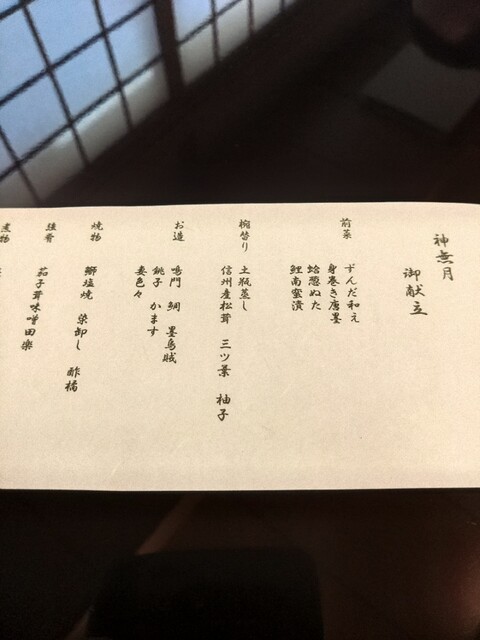 神無月
御献立
前菜
ずんだ和え
身巻き唐墨
蛤葱ぬた
鯉南蛮漬
椀替り
土瓶蒸し
信州産松茸 三ツ葉 柚子
お造
鳴門 鯛 墨烏賊
銚子 かます
妻色々
焼物
鰤塩焼 染卸し 酢橘
強肴
茄子茸味噌田楽
煮物